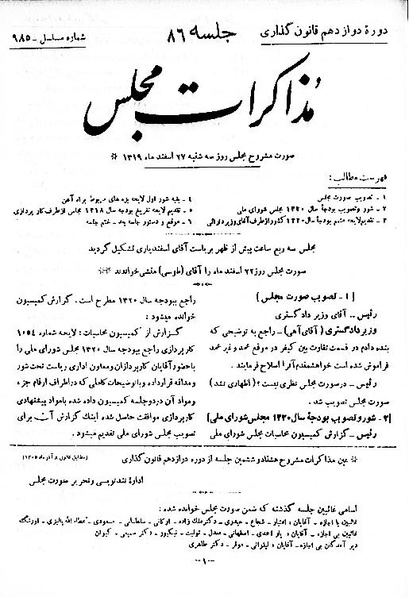 دورهٔ دوازدهم قانون گذاری
جلسه ۸۶
شماره مسلسل - ۹۸۵
مذاکرات مجلس
صورت مشروح مجلس روز سه شنبه ۲۷ اسفند ماه ۱۳۱۹ *
فهرست مطالب:
۱ - تصویب صورت مجلس
۲ - شور و تصویب بودجهٔ سال ۱۳۲۰ مجلس شورای ملی
۳ - تقدیم لایحهٔ متمم بودجهٔ سال ۱۳۲۰ کشور از طرف آقای وزیر دارائی
۴ - بقیه شور اول لایحه بزه های مربوط براه آهن
۵ - تقدیم لایحه تفریغ بودجه سال ۱۳۱۸ مجلس از طرف کارپردازی
۶ - موقع و دستور جلسه بعد - ختم جلسه
مجلس سه ربع ساعت پیش از ظهر بریاست آقای اسفندیاری تشکیل گردید
صورت مجلس روز ۲۲ اسفند ماه را آقای (طوسی) منشی خواندند
[۱ - تصویب صورت مجلس]
رئیس - آقای وزیر دادگستری
وزیر دادگستری (آقای آهی) - راجع به توضیحی که
بنده دادم در قسمت تفاوت بین کیفر در موقع عمد و غیر عمد
فراموش شده است خواهشمندم آنرا اصلاح فرمایند.
رئیس - درصورت مجلس نظری نیست؟ (اظهاری نشد)
صورت مجلس تصویب شد.
[۲ - شور و تصویب بودجهٔ سال ۱۳۲۰ مجلس شورای ملی]
رئیس - گزارش کمیسیون محاسبات مجلس شورای ملی
راجع ببودجه سال ۱۳۲۰ مطرح است. گزارش کمیسیون
خوانده میشود:
گزارش از کمیسیون محاسبات: لایحه شماره ۱۰۵۴
کارپردازی راجع ببودجه ۱۳۲۰ مجلس شورای ملی را
با حضور آقایان کارپردازان و معاون اداری ریاست تحت شور
و مداقه قرارداده و با توضیحات کاملی که در اطراف ارقام جزء
و مواد آن در دو جلسه کمیسیون داده شده با مواد پیشنهادی
کارپردازی موافقت حاصل شده اینک گزارش آن برای
تصویب مجلس شورای ملی تقدیم میشود.
* عین مذاکرات مشروح هشتاد و ششمین جلسه از دوره دوازدهم قانون گذاری
(مطابق قانون ۸ آذر ماه ۱۳۰۵)
اداره تندنویسی و تحریر صورت مجلس
اسامی غائبین جلسه گذشته که ضمن صورت مجلس خوانده شده:
غائبین با اجازه - آقایان: اعتبار - شجاع - حیدری - دکتر ملک زاده - اورکانی - سلطانی - مسعودی - عطاء الله پالیزی - اورنگ
غائبین بی اجازه - آقایان: اسعدی - اصفهانی - معدل - تولیت - نیکپور - دکتر سمیعی - کیوان
دیر آمدگان بی اجازه - آقایان: لیقوانی - موقر - دکتر طاهری
-۱-